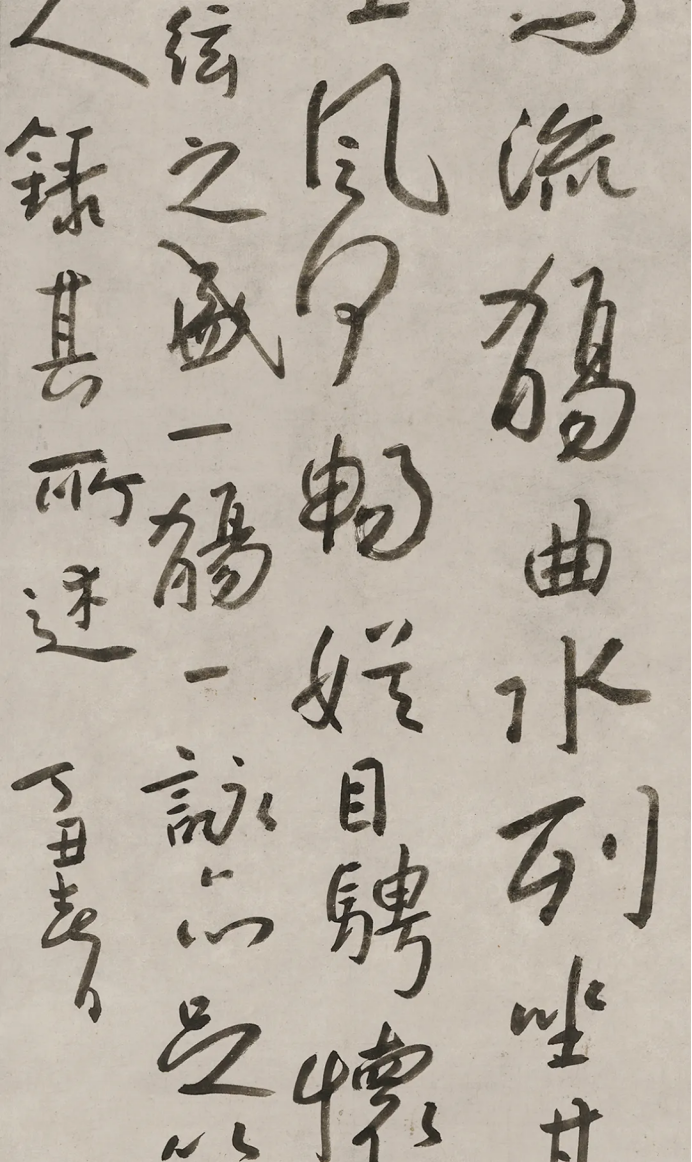 流觴曲水列坐其
風和暢娛目騁懷
絃之盛一觴一詠亦足以
人錄其所述 丁丑春日